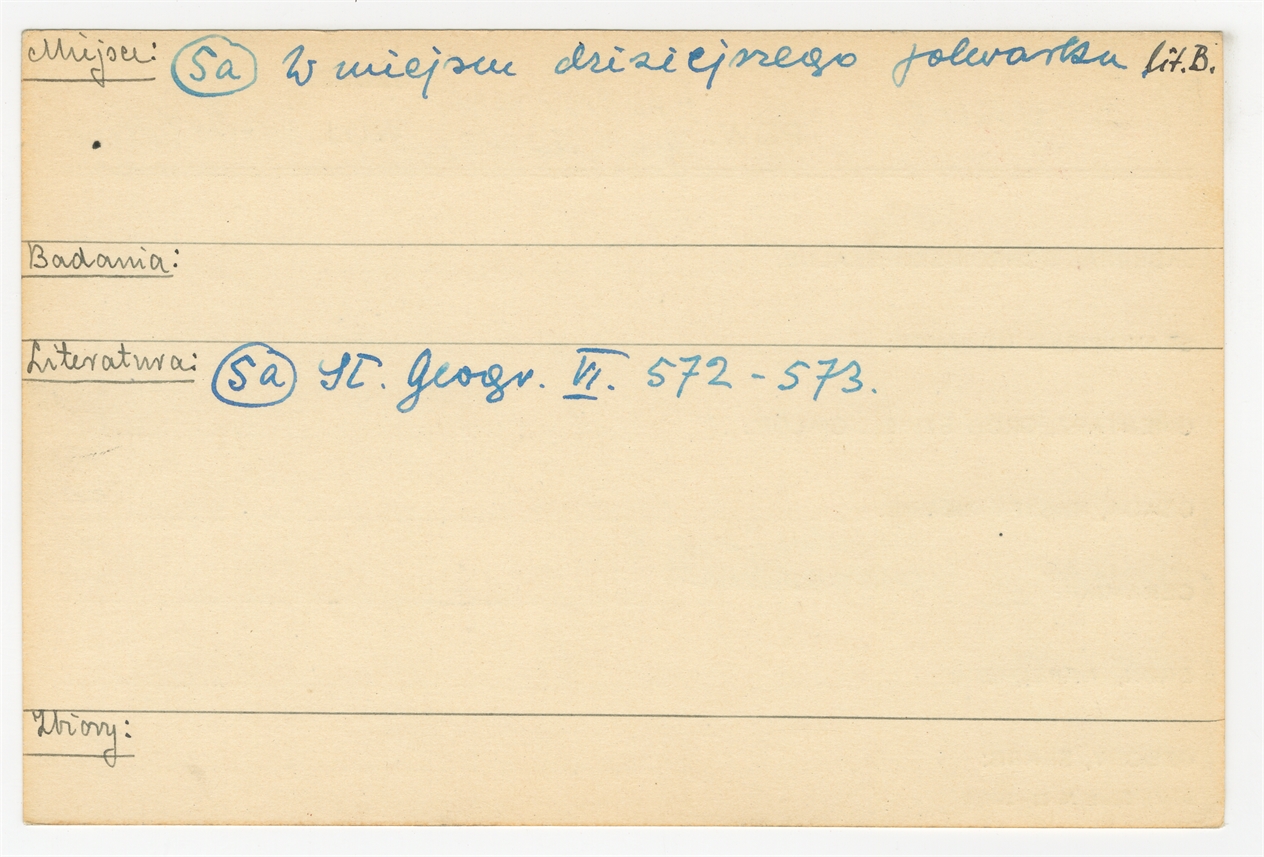 Miejsce: 5a W miejscu dzisiejszego folwarku lit. B.
Badania:
Literatura: 5a Sł. Geogr. VI. 572-573.
Zbiory: